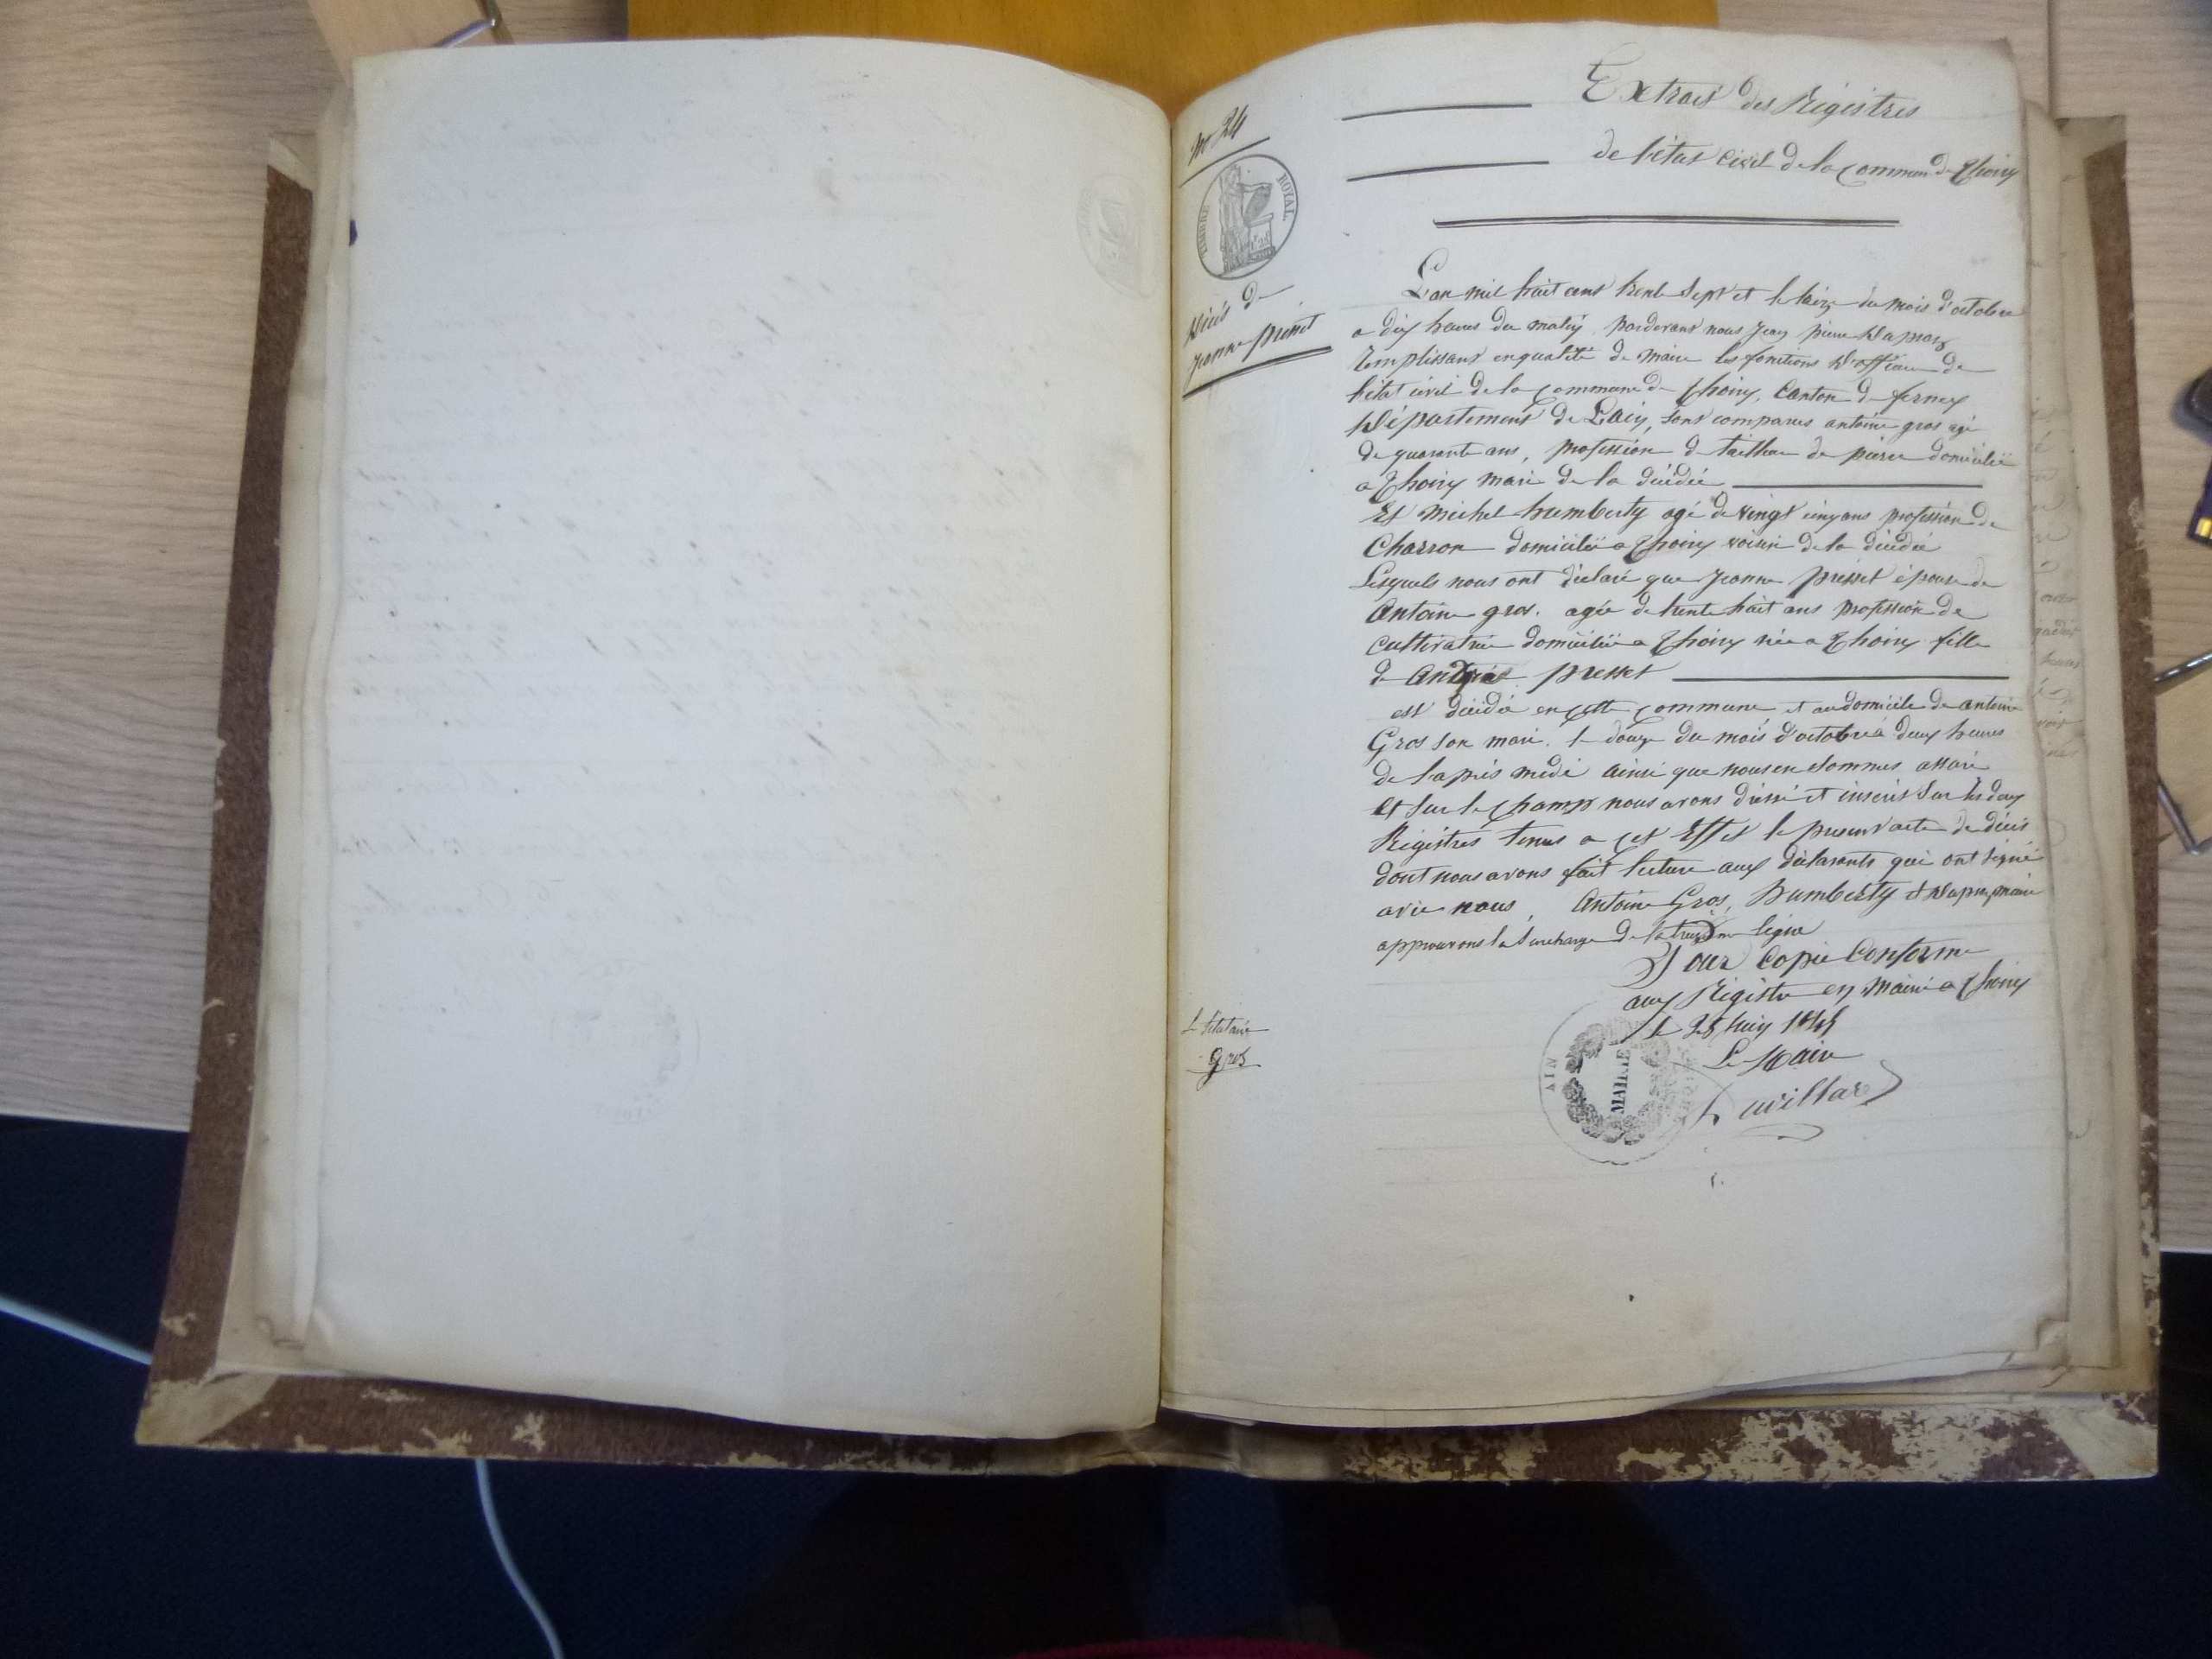 Extrait des Régistres
de l'état civil de la commune de Thoiry
n° 24
TIMBRE ROYAL
Décès de
Jeanne Presset
L'an mil huit cent trente sept et le treize du mois d'octobre
a dix heures du matin pardevant nous Jean pierre Dapraz
Remplissant en qualité de maire les fonctions d'officier de
l'état civil de la commune de Thoiry, Canton de ferney
Département de L'ain, sont comparus antoine gros agé
de quarante ans, profession de tailleur de pierre domicilié
a Thoiry mari de la décédée
Et michel humberty agé de vingt cinq ans profession de
Charron domicilié a Thoiry voisin de la décédée
Lesquels nous ont déclaré que Jeanne presset épouse de
Antoine gros. agée de trente huit ans profession de
Cultivatrice domiciliée a Thoiry née a Thoiry fille
de André presset
est décédée en cette commune et au domicile de antoine
Gros son mari. le douze du mois d'octobre à deux heures
de l'après midi ainsi que nous en sommes assuré
et sur le champ nous avons dressé et inscrit sur les deux
Régistres tenus a cet Effet le present acte de décès
dont nous avons fait lecture aux déclarants qui ont signé
avec nous, Antoine Gros, humberty et Dapraz, maire
approuvons la surcharge de la treizième ligne
Pour Copie Conforme
aux Régistre en Mairie a Thoiry
le 25 Juin 1845
Le Maire
AIN
MAIRIE
L titulaire
Gros